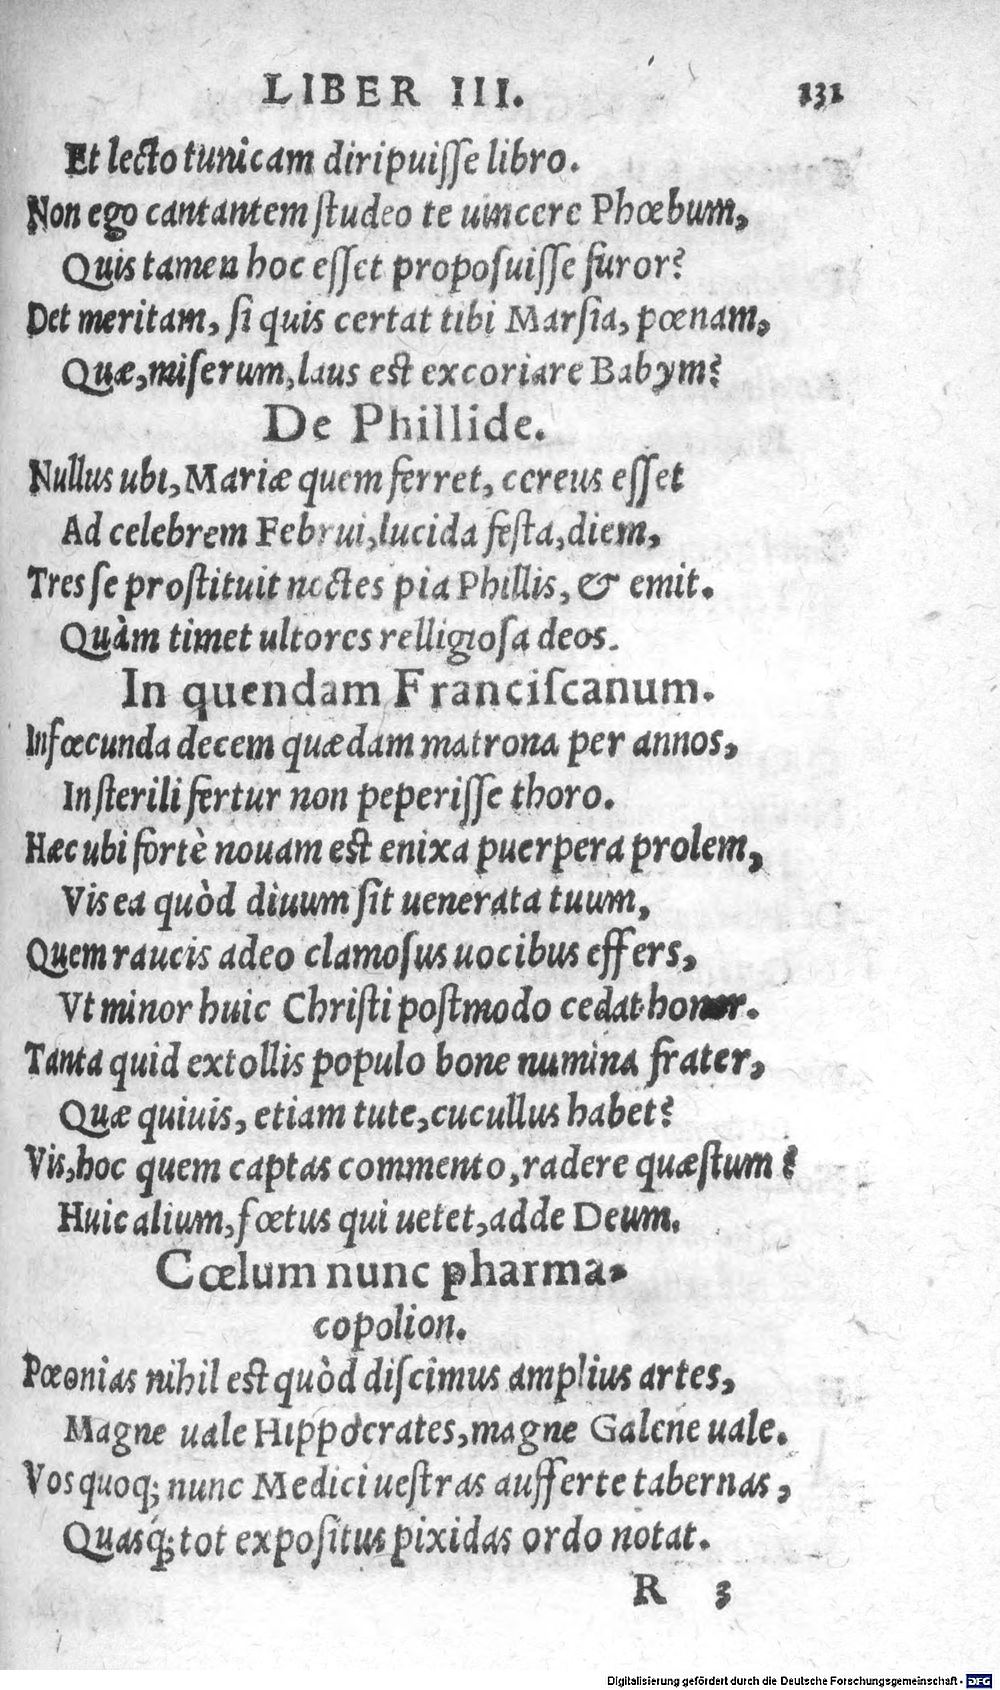 LIBER III. 131
Et lecto tunicam diripuiſſe libro.
Non ego cantantem ſtudeo te uincere Phœbum,
Quis tamen hoc eſſet propoſuiſſe furor?
Det meritam, ſi quis certat tibi Marſia, pœnam,
Quæ, miſerum, laus eſt excoriare Babym?
De Phillide.
Nullus ubi, Mariæ quem ferret, cereus eſſet
Ad celebrem Februi, lucida feſta, diem,
Tres ſe proſtituit noctes pia Phillis, & emit.
Quàm timet ultores relligioſa deos.
In quendam Franciſcanum.
Infœcunda decem quædam matrona per annos,
In ſterili fertur non peperiſſe thoro.
Hæc ubi fortè nouam eſt enixa puerpera prolem,
Vis ea quòd diuum ſit uenerata tuum,
Quem raucis adeo clamoſus uocibus effers,
Vt minor huic Chriſti poſtmodo cedat honor.
Tanta quid extollis populo bone numina frater,
Quæ quiuis, etiam tute, cucullus habet?
Vis, hoc quem captas commento, radere quæſtum?
Huic alium, fœtus qui uetet, adde Deum.
Cœlum nunc pharma-
copolion.
Pœonias nihil eſt quòd diſcimus amplius artes,
Magne uale Hippocrates, magne Galene uale.
Vos quoq; nunc Medici ueſtras aufferte tabernas,
Quasq; tot expoſitus pixidas ordo notat.
R 3
Digitalisierung gefördert durch die Deutsche Forschungsgemeinschaft - DFG